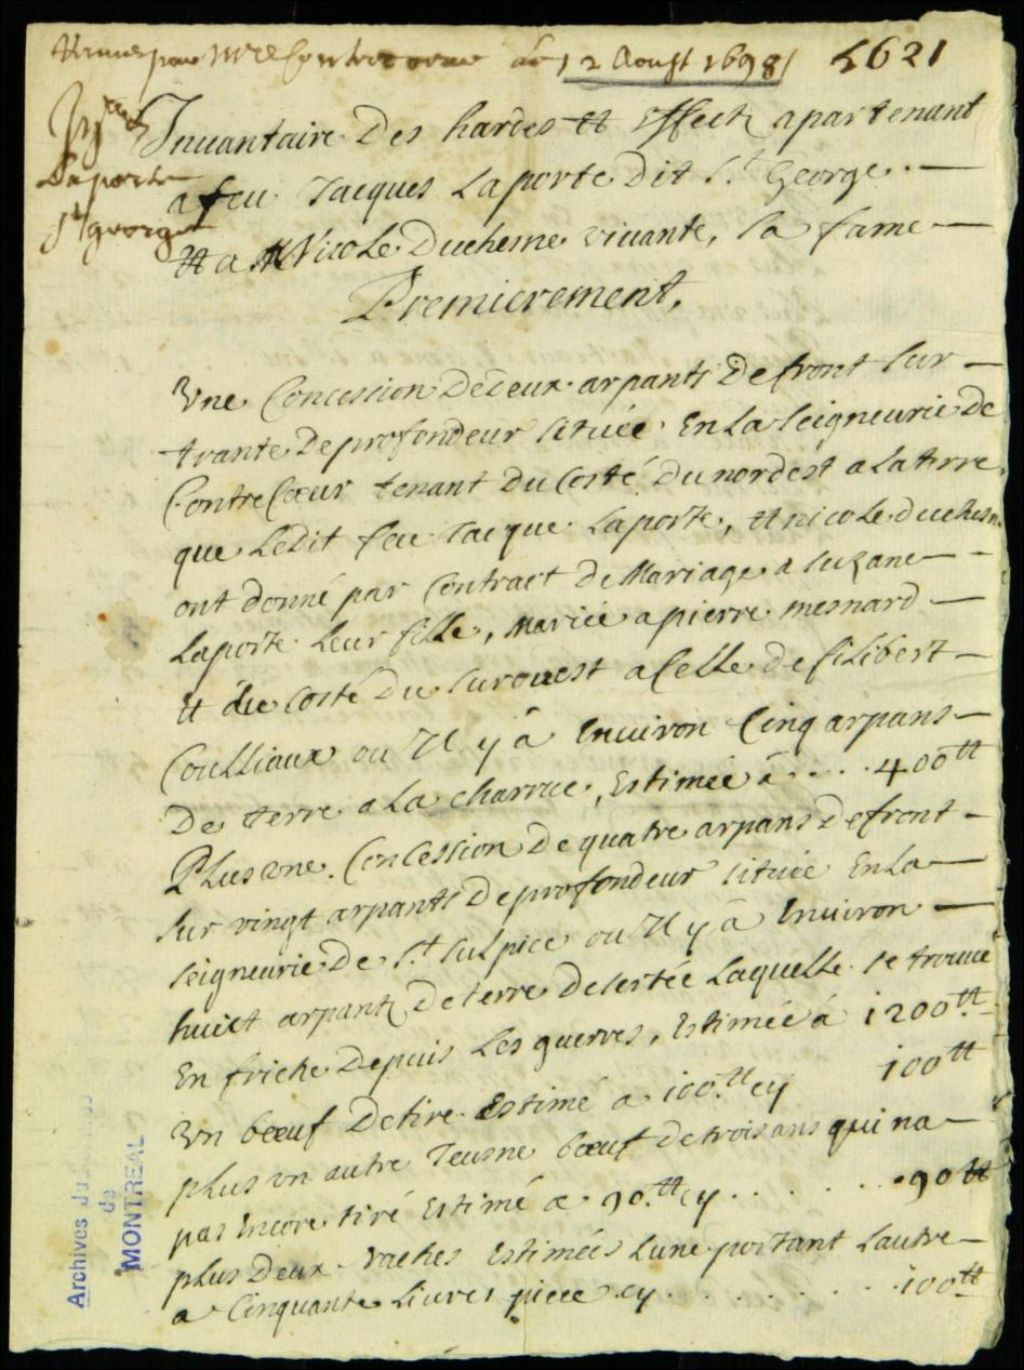 pour Mr de Contrecoeur du 12 Aoust 1698 / 4621
Inuantaire Des hardes et Effectz apartenant
Laporte
a feu Jacques Laporte Dit St. George .. —
St george
et a Nicole Duchesne viuante, sa fame —
Premierement,
Vne Concession De deux arpants De front sur —
trante De profondeur sitüée En La seigneurie De
ContreCoeur tenant Du Costé Du nordest a La terre
que Ledit feu Jacque Laporte, et nicole duchesn.
ont donné par Contract De Mariage a suzane —
Laporte Leur fille, Mariée a pierre mesnard —
et du Costé Du surouest a Celle de filibert —
Coulliaux ou Il y â Enuiron Cinq arpans —
De terre a La charrue, Estimée â .... 400tt
Plus vne. Concession De quatre arpans De front —
sur vingt arpants De profondeur sitüée En La —
seigneurie De St. sulpice ou Il y â Enuiron —
huict arpantz De terre Desertée Laquelle se trouue
En friche Depuis Les guerres, Estimée á 1200tt
Vn boeuf De tire Estimé a 100.tt cy 100tt
plus vn autre Jeusne boeuf De trois ans qui na —
pas Encore tiré Estimé a 90.tt cy ....... 90tt
plus Deux vaches Estimées Lune portant Lautre —
a Cinquante Liures piece cy ........ 100tt
Archives
de
MONTREAL